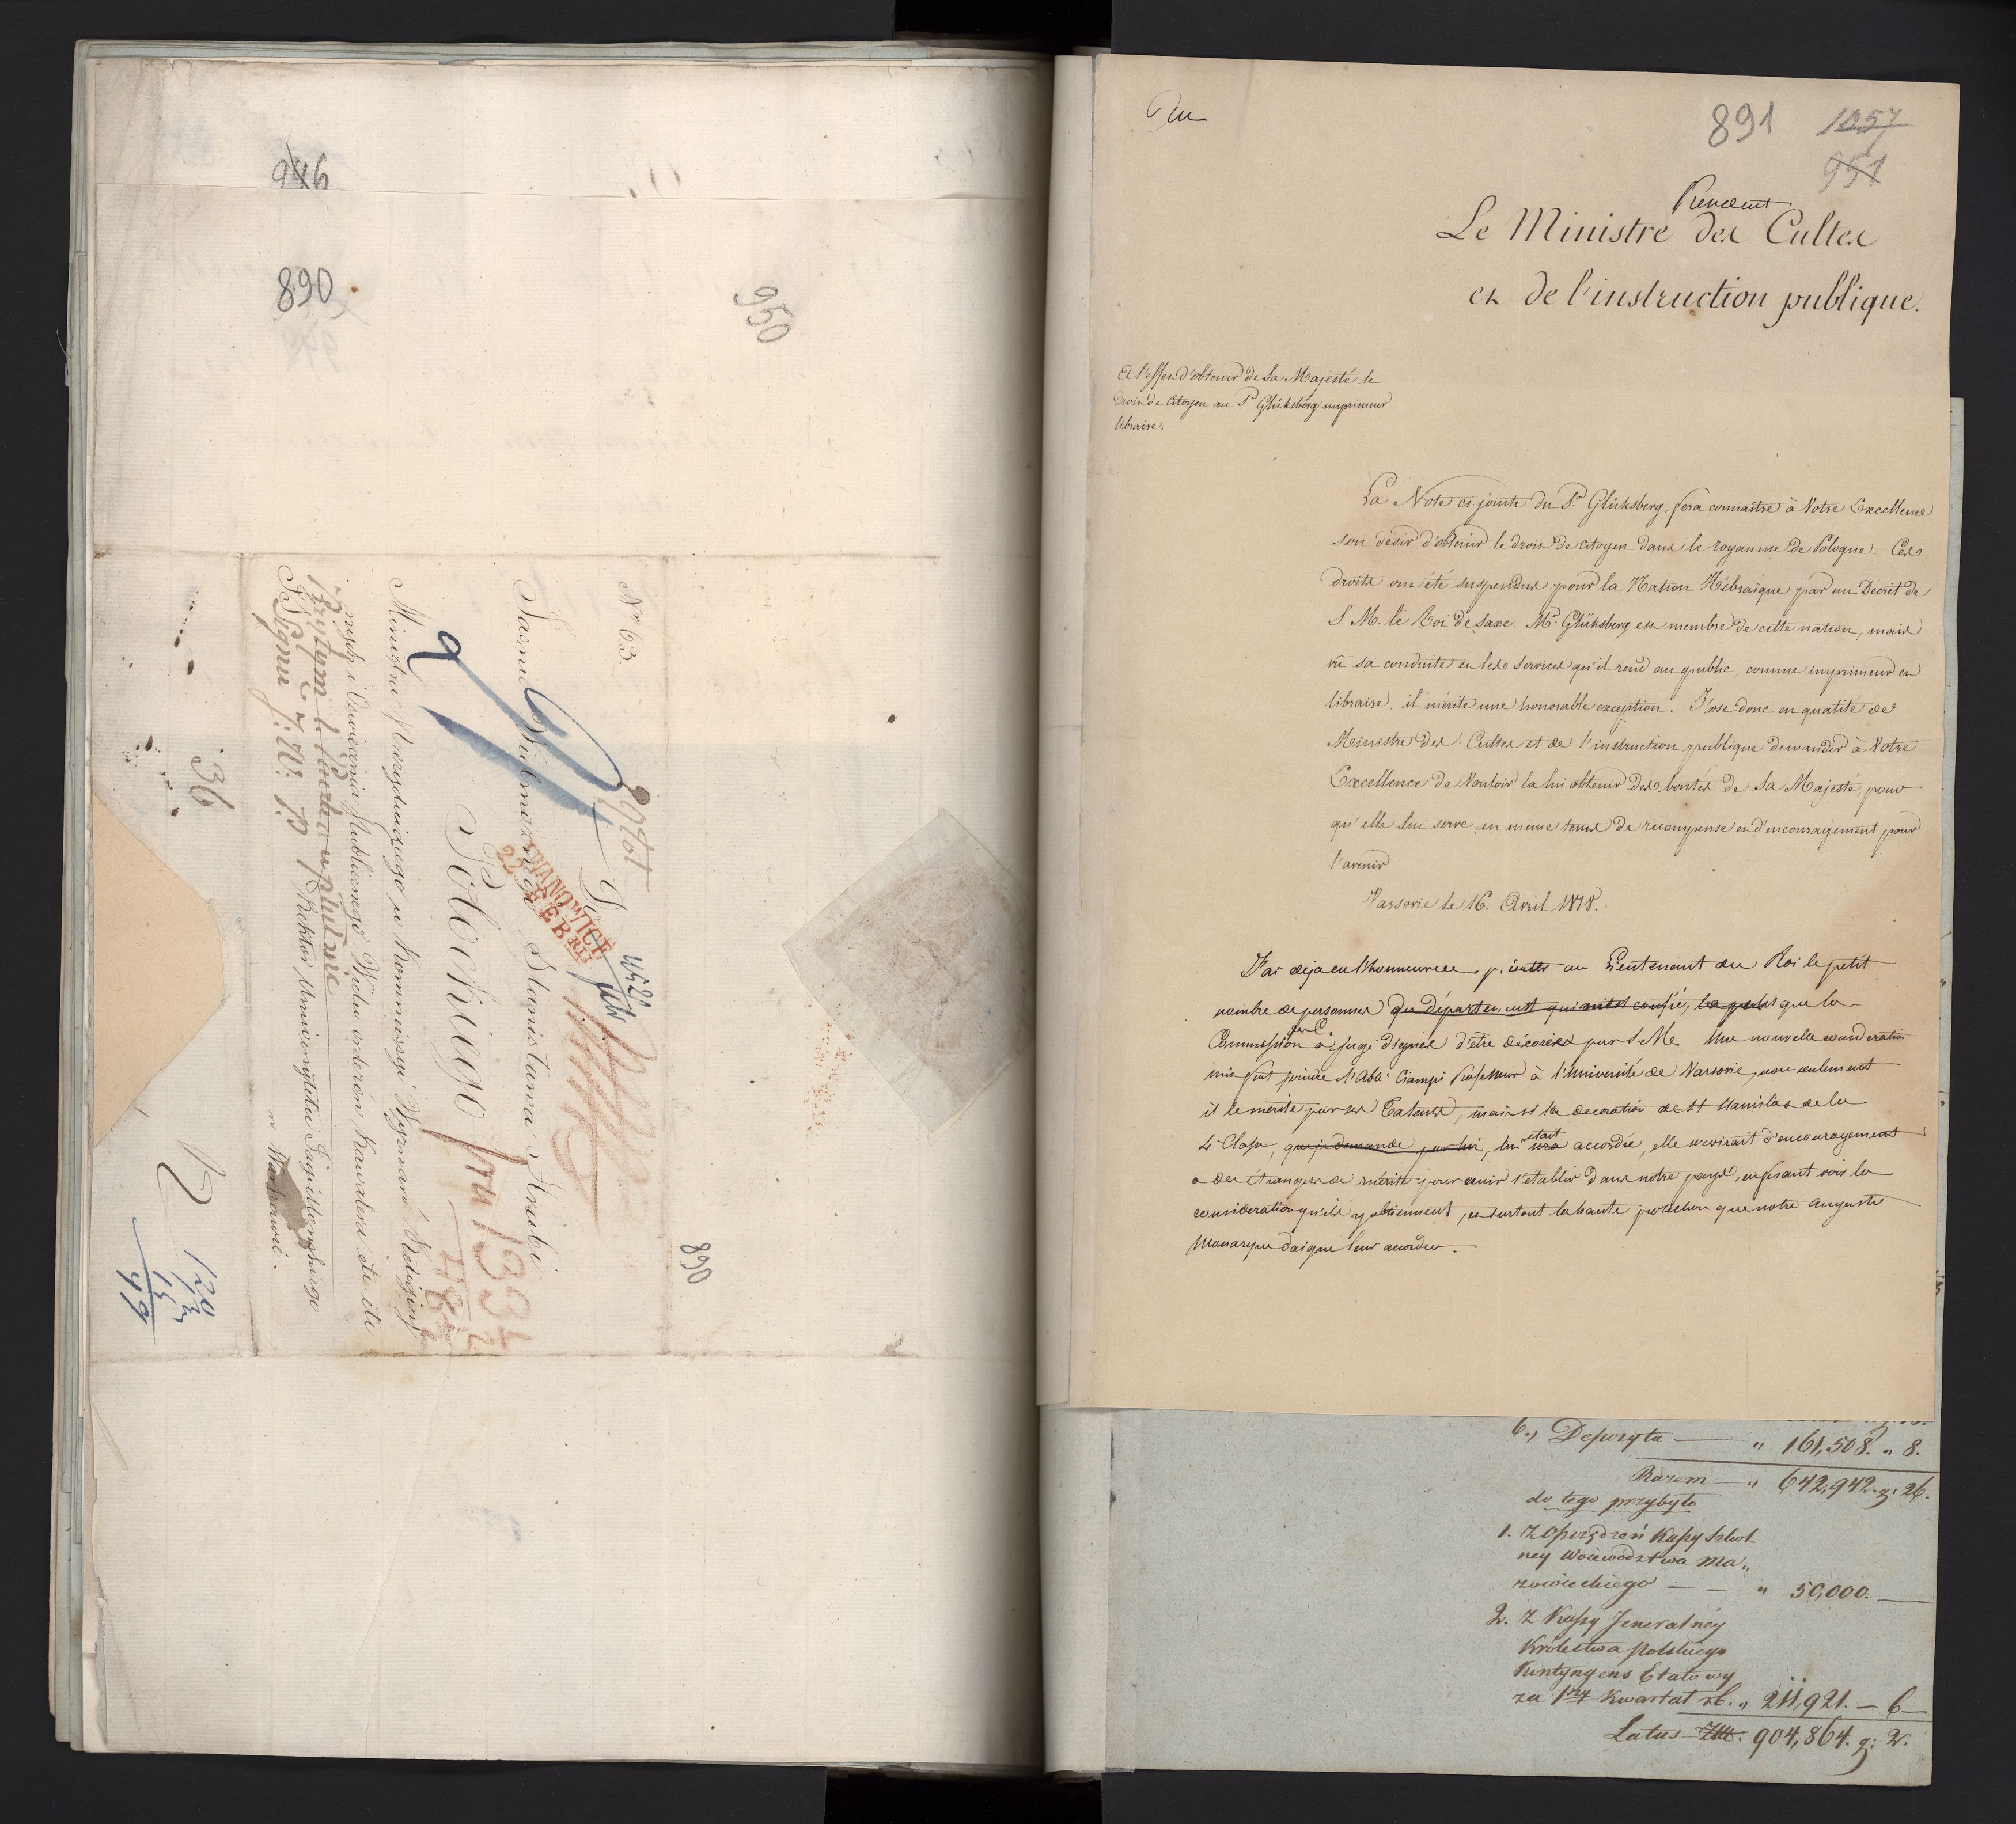 946
890
950
No 63.
Do
Jaśnie Wielmożnego Stanisława Hrabi
Potockiego
Ministra Prezyduiącego w Kommissyi Wyznań Religijnych
i Oswiecenia Publicznego Wielu orderów Kawalera etc etc
J. W. P. Rektor Uniwersytetu Jagiellońskiego
w Warszawie.
36
890
891 1057
951
Le Ministre des Cultes
et de l'instruction publique.
A l'effet d'obtenir de Sa Majesté le
droit de Citoyen au Sr Glüksberg imprimeur
libraire.
La Note ci-jointe du Sr Glüksberg, fera connaître à Votre Excellence
son désir d'obtenir le droit de citoyen dans le royaume de Pologne. Ces
droits ont été suspendus pour la Nation Hébraïque par un Décret de
S. M. le Roi de Saxe. Mr Glüksberg est membre de cette nation, mais
vû sa conduite et les services qu'il rend au public, comme imprimeur et
libraire, il mérite une honorable exception. J'ose donc en qualité de
Ministre des Cultes et de l'instruction publique demander à Votre
Excellence de Vouloir la lui obtenir des bontés de Sa Majesté, pour
qu'elle lui serve en même tems de recompense et d'encouragement pour
l'avenir
Varsovie le 16. Avril 1818.
J'ai deja eu l'honneur de au Lieutenant du Roi le petit
nombre de personnes du département qui m'est confié, que la
Commission a jugé dignes d'être décorées par S. M. Une nouvelle consideration
m'y fait joindre l'Abbé Ciampi Professeur à l'Université de Varsovie, non seulement
il le merite par ses Talens, mais si la decoration de St Stanislas de la
4e Classe, que je demande pour lui, lui était accordée, elle serviroit d'encouragement
a des étrangers de mérite pour venir s'etablir dans notre pays, en faisant voir la
consideration qu'ils y obtiennent, et surtout la haute protection que notre Auguste
Monarque daigne leur accorder.
6., Depozyta — " 161,508. " 8.
Razem — " 642,942. g: 26.
do tego przybyło
1. Z Kassy Szkol-
ney Województwa Ma„
zowieckiego — — " 50,000. —
2. Z Kassy Jeneralnéy
Królestwa Polskiego
Kontyngens Etatowy
za 1szy Kwartał rb. " 211,921. — 6
Latus 904,864. g: 2.